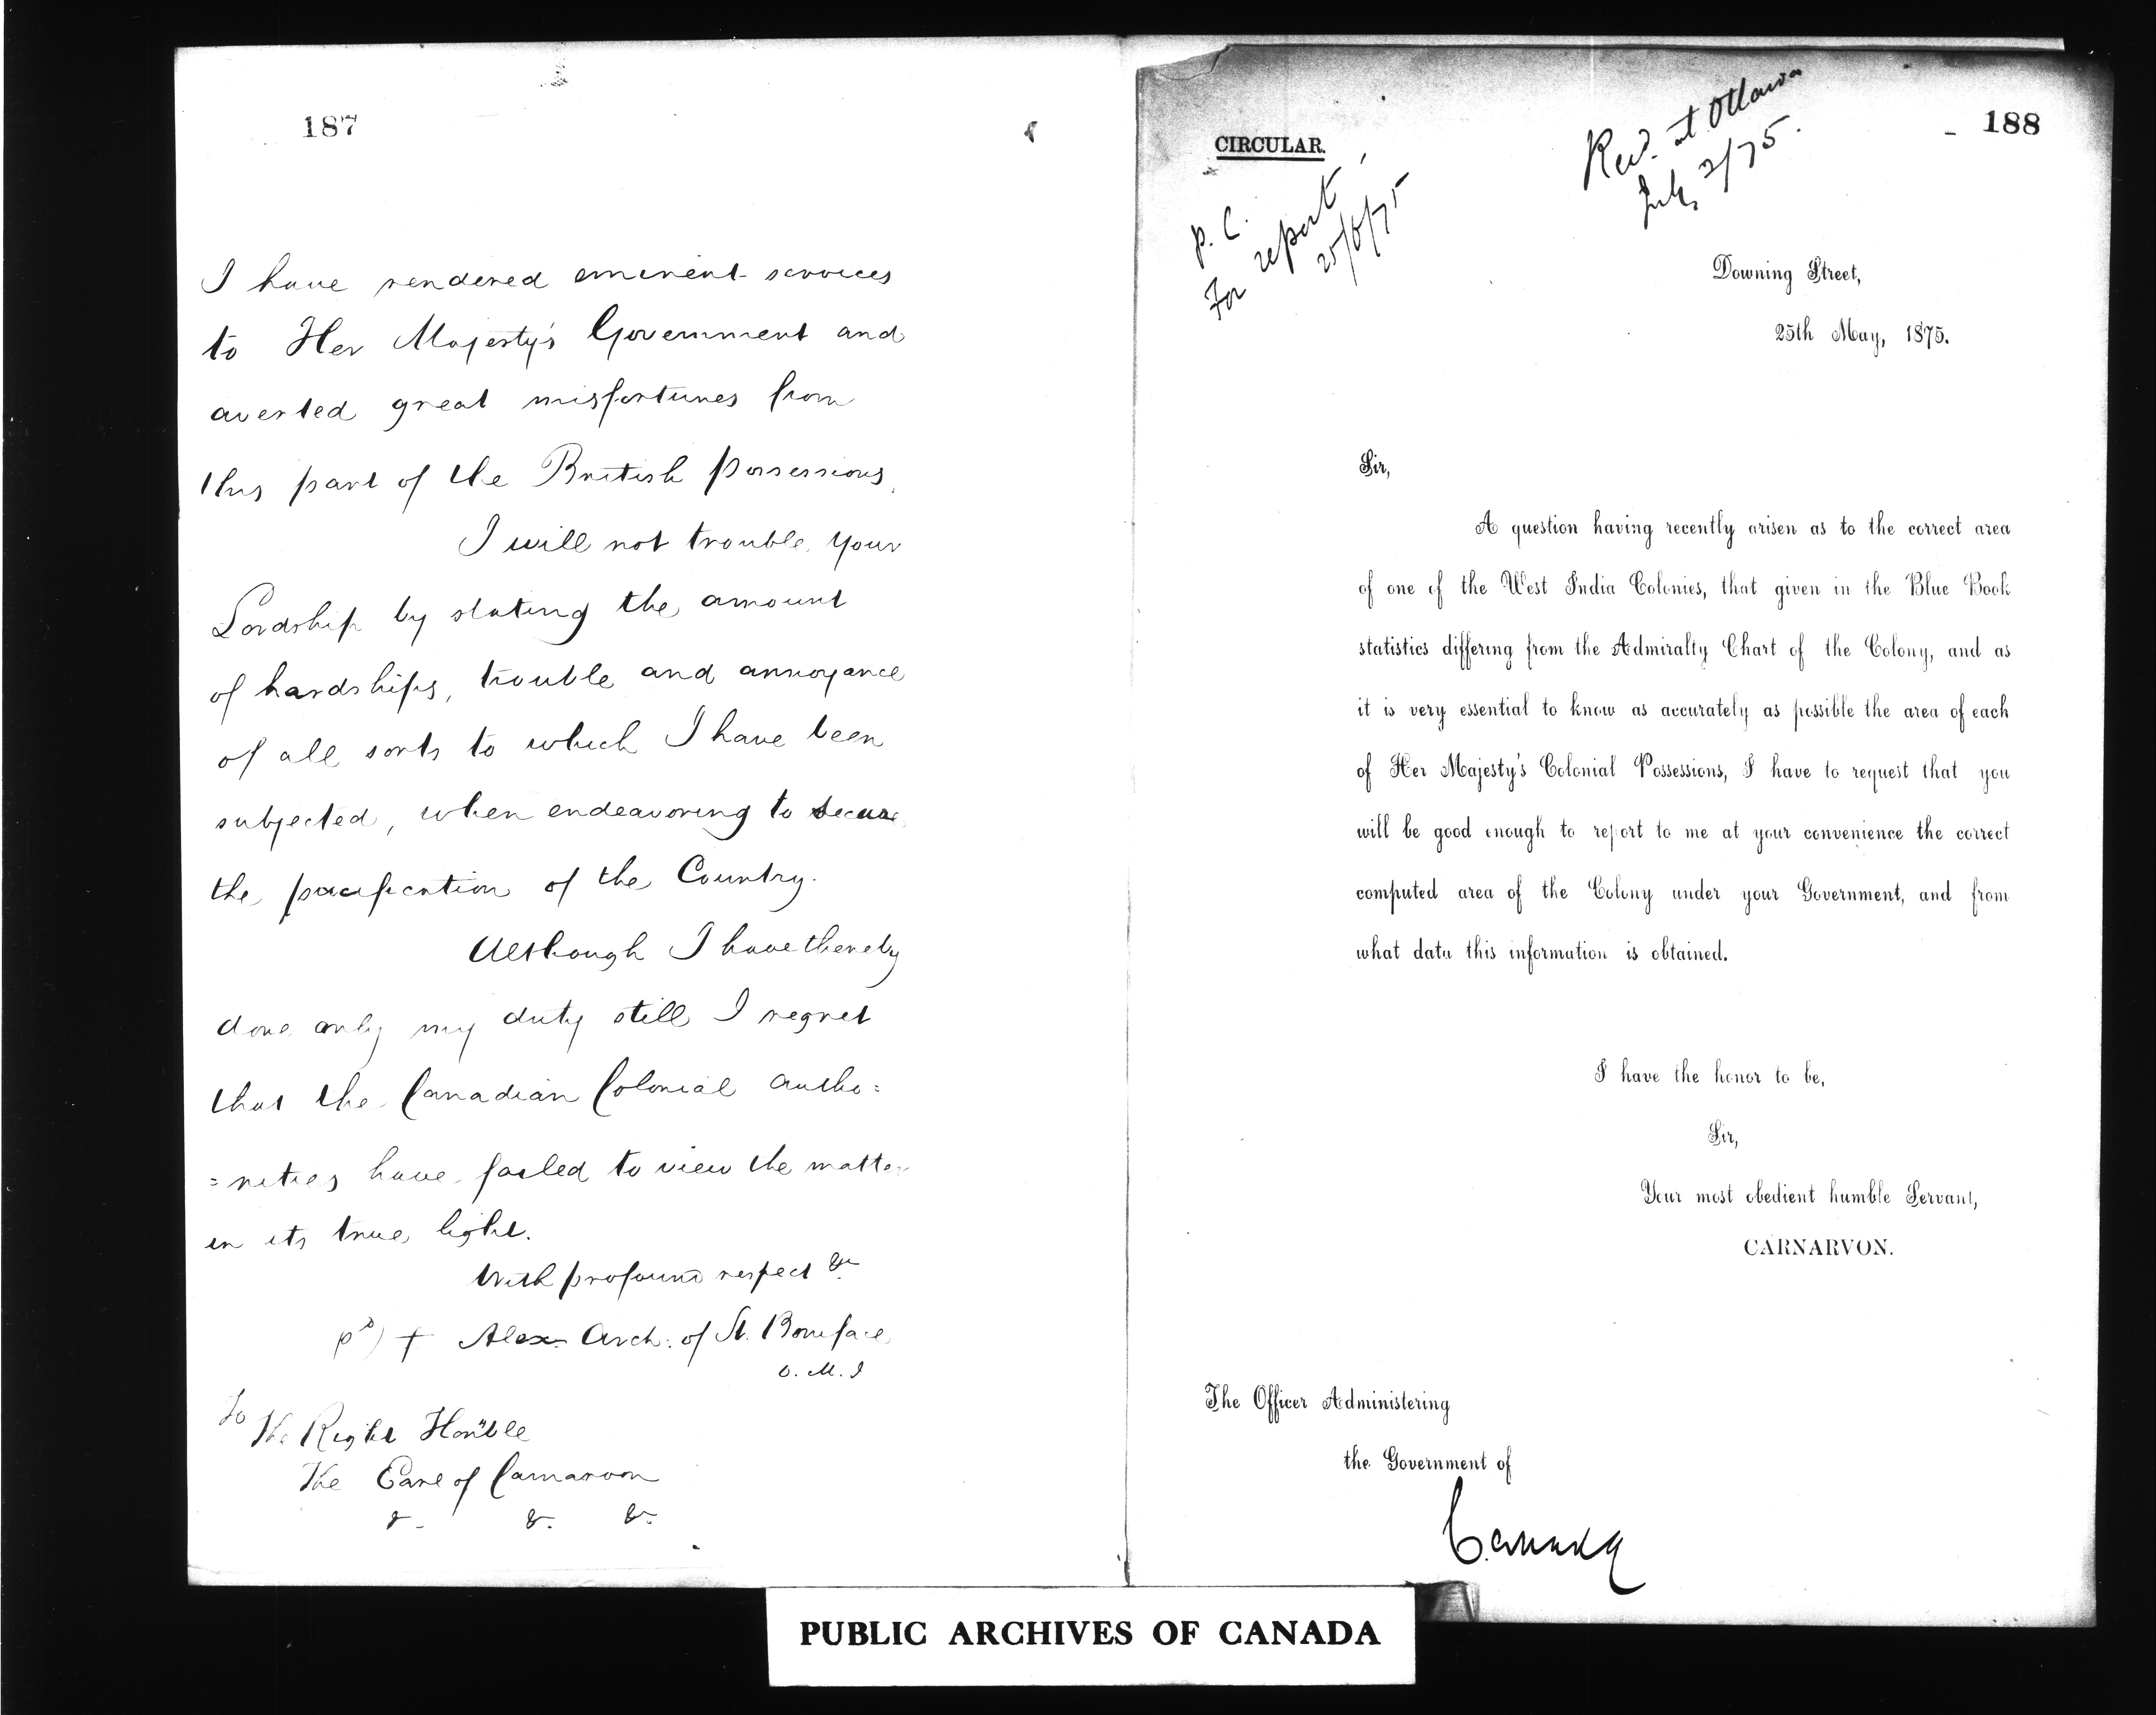 187
I have rendered eminent services
to Her Majesty's Government and
averted great misfortunes from
this part of the British possessions.
I will not trouble your
Lordship by stating the amount
of hardships, trouble and annoyance
of all sorts to which I have been
subjected, when endeavoring to secure
the pacification of the Country.
Although I have thereby
done only my duty still I regret
that the Canadian Colonial autho=
=rities have failed to view the matter
in its true light.
With profound respect &c
† Alex. Arch: of St. Boniface
O. M. I
To The Right Honble
The Earl of Carnarvon
&. &. &.
188
CIRCULAR.
Recd. at Ottawa
July 2/75.
P. C.
For report
25/6/75
Downing Street,
25th May, 1875.
Sir,
A question having recently arisen as to the correct area
of one of the West India Colonies, that given in the Blue Book
statistics differing from the Admiralty Chart of the Colony, and as
it is very essential to know as accurately as possible the area of each
of Her Majesty's Colonial Possessions, I have to request that you
will be good enough to report to me at your convenience the correct
computed area of the Colony under your Government, and from
what data this information is obtained.
I have the honor to be,
Sir,
Your most obedient humble Servant,
CARNARVON.
The Officer Administering
the Government of
Canada
PUBLIC ARCHIVES OF CANADA